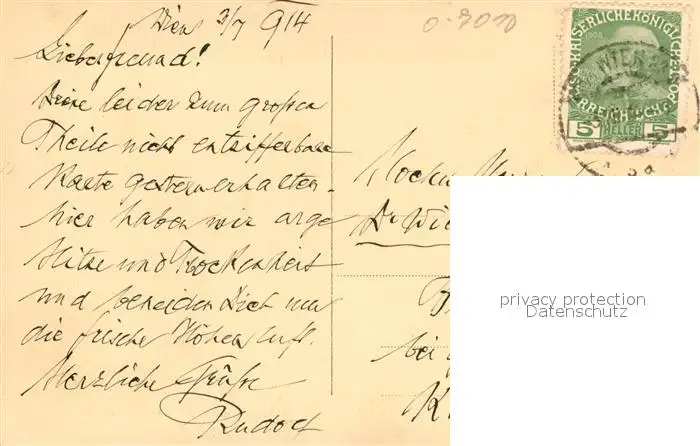 Wien 3/7 914
Lieber Freund!
Deine leider zum großen
Theile nicht entzifferbare
Karte gestern erhalten.
hier haben wir arge
Hitze und Trockenheit
und beneiden Dich um
die frische Höhenluft.
Herzliche Grüße
Rudolf
KAISERLICHE KÖNIGLICHE
1908
WIEN
5 HELLER 5
Hoch
Dr Wil
bei
K
privacy protection
Datenschutz